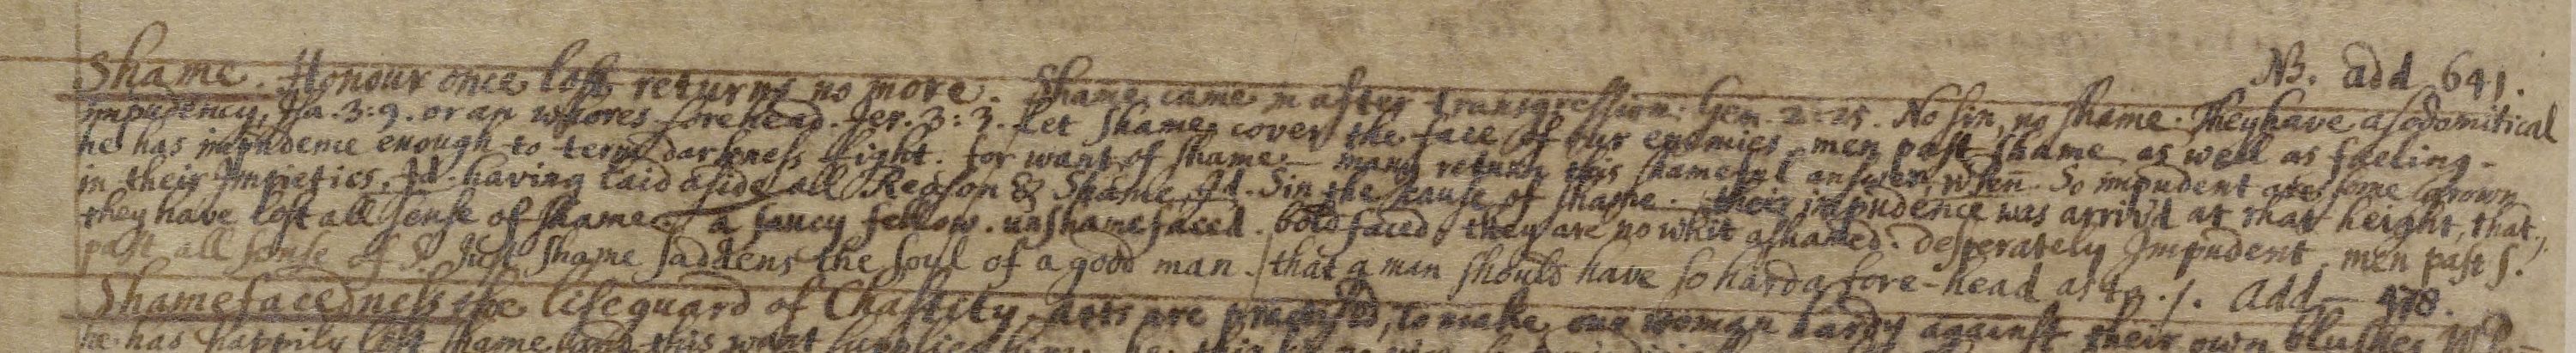 NB. add 641.
Shame. Honour once lost returns no more. Shame came in after transgression. Gen. 2:25. No sin, no shame. They have a sodomitical
impudency, Isa. 3:9. or an whores forehead. Jer. 3:3. Let shame cover the face of our enemies. men past shame as well as feeling.
he has impudence enough to term darkness light. for want of shame - many return this shameful answer, when. So impudent are some grown
in their Impieties. Id. having laid aside all Reason & Shame. Id. Sin the cause of shame. their impudence was arriv'd at that height, that
they have lost all sense of shame. a saucy fellow. unshamefaced. boldfaced. they are no whit ashamed. desperately Impudent. men past S.
past all sense of S. Just shame saddens the soul of a good man. / that a man should have so hard a fore-head as to ./. Add - 478.
Shamefacedness the lifeguard of Chastity. Arts are practised, to make woman hardy against their own blushes.
he has happily lost shame and this want